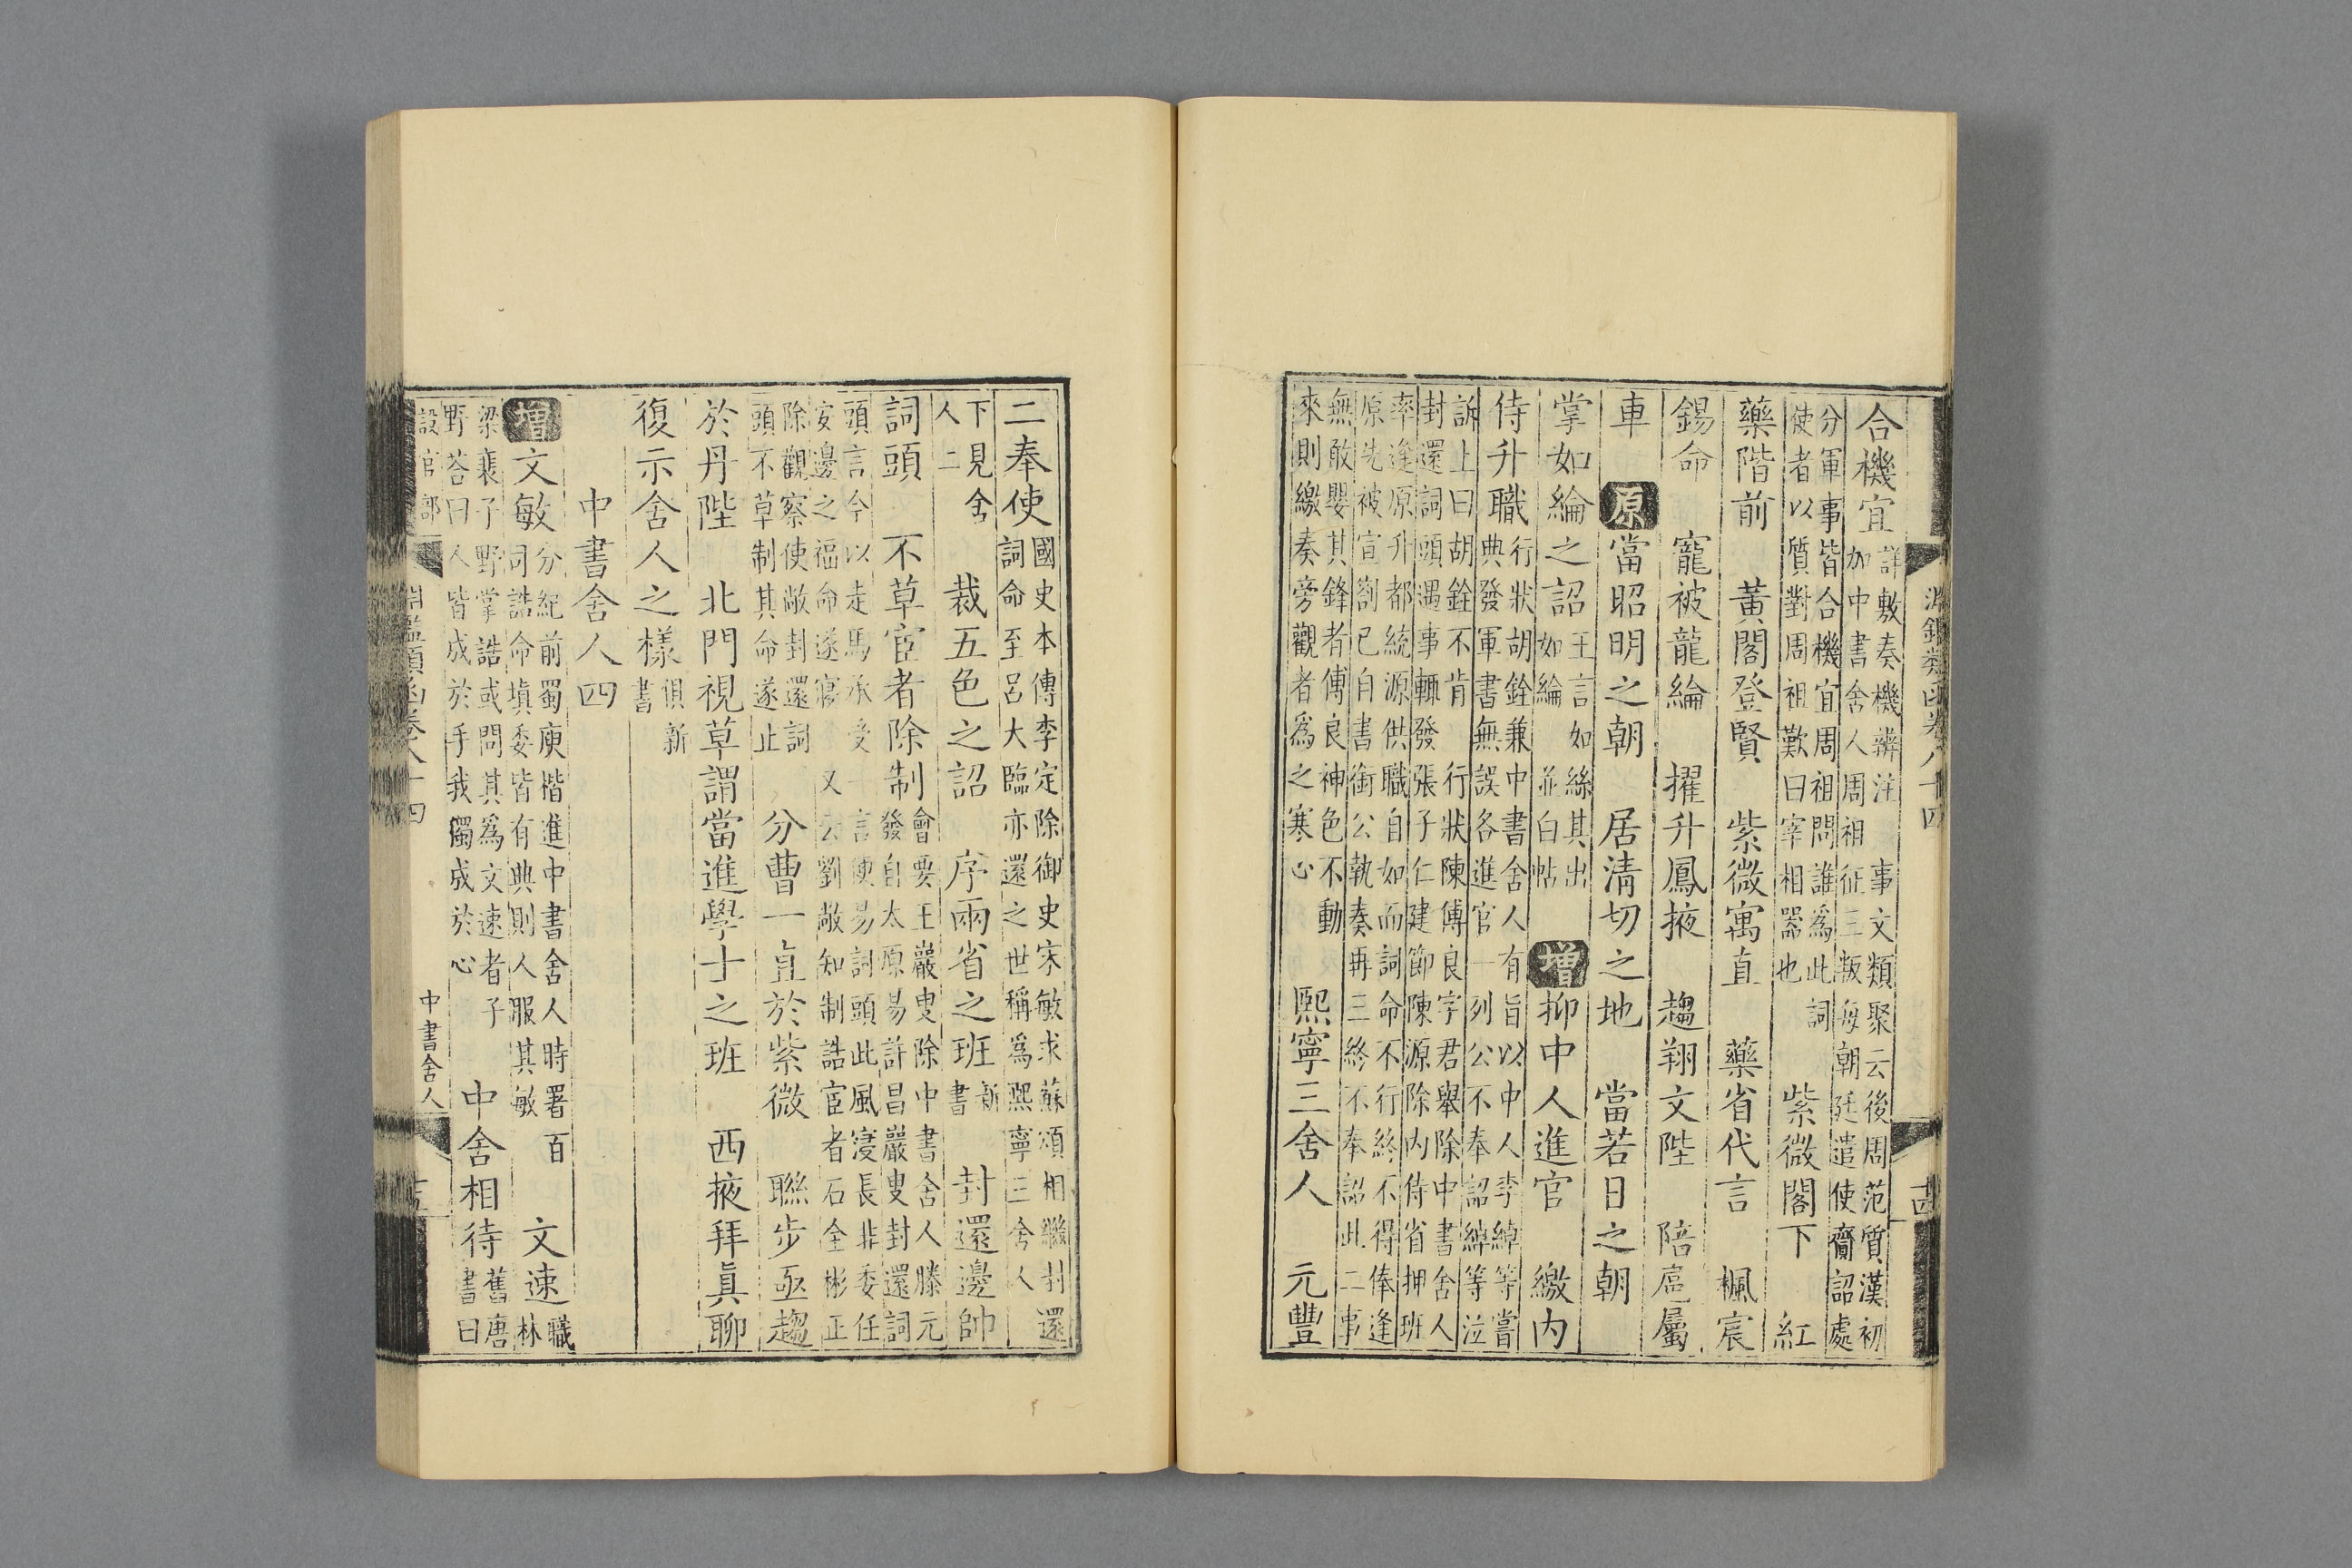 淵鑑類函卷八十四
合機宜 詳敷奏機辨注 事文類聚云後周范質漢初
加中書舍人周祖征三叛每朝廷遣使齎詔處
分軍事皆合機宜周祖問誰為此詞
使者以質對周祖歎曰宰相器也 紫微閣下 紅
藥階前 黃閣登賢 紫微寓直 藥省代言 楓宸
錫命 寵被龍綸 擢升鳳掖 趨翔文陛 陪扈屬
車 原 當昭明之朝 居清切之地 當若日之朝
掌如綸之詔 王言如絲其出
如綸 並白帖 增 抑中人進官 繳內
侍升職 行狀胡銓兼中書舍人有旨以中人李綽等嘗
典發軍書無誤各進官一列公不奉詔綽等泣
訴上曰胡銓不肯 行狀陳傅良字君舉除中書舍人
封還詞頭遇事輒發 張子仁建節陳源除內侍省押班
率逢原升都統源供職自如而詞命不行終不得俸逢
原先被宣劄已自書銜公執奏再三終不奉詔此二事
無敢嬰其鋒者傅良神色不動
來則繳奏旁觀者為之寒心 熙寧三舍人 元豐
二奉使 國史本傳李定除御史宋敏求蘇頌相繼封還
詞命至呂大臨亦還之世稱為熙寧三舍人
下見舍
人二 裁五色之詔 序兩省之班 新
書 封還邊帥
詞頭 不草宦者除制 會要王巖叟除中書舍人滕元
發自太原易許昌巖叟封還詞
頭言今以走馬承受一言便易詞頭此風寖長非委任
安邊之福命遂寢 又云劉敞知制誥宦者石全彬正
除觀察使敞封還詞
頭不草制其命遂止 分曹一直於紫微 聯步亟趨
於丹陛 北門視草謂當進學士之班 西掖拜眞聊
復示舍人之樣 俱新
書
中書舍人四
增 文敏 分紀前蜀庾楷進中書舍人時署百
司誥命塡委皆有典則人服其敏 文速 職
林
梁裴子野掌誥或問其為文速者子
野荅曰人皆成於手我獨成於心 中舍相待 舊唐
書曰
設官部 淵鑑類函卷八十四 中書舍人